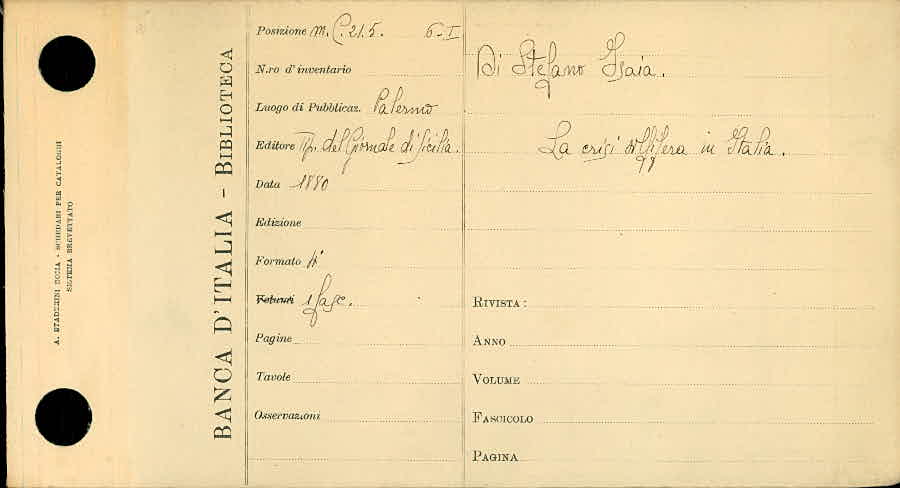 A. STADERINI ROMA - SCHEDARI PER CATALOGHI
SISTEMA BREVETTATO
BANCA D'ITALIA - BIBLIOTECA
Posizione m. C. 21. 5. 6-I
N.ro d'inventario
Luogo di Pubblicaz. Palermo
Editore Tip. del Giornale di Sicilia.
Data 1880
Edizione
Formato 4°
Volumi 1 fasc.
Pagine
Tavole
Osservazioni
Di Stefano Isaia.
La crisi in Italia.
RIVISTA:
ANNO
VOLUME
FASCICOLO
PAGINA